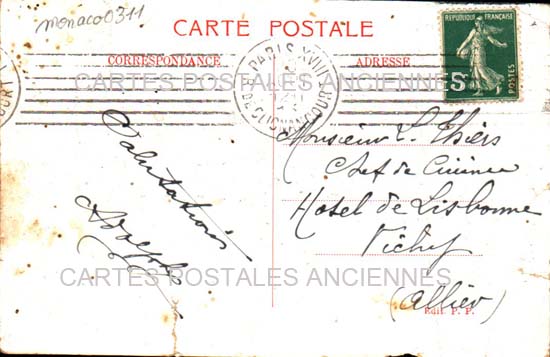 monaco0311
CARTE POSTALE
CORRESPONDANCE
ADRESSE
REPUBLIQUE FRANÇAISE
POSTES
PARIS XVIII
R. DE CLIGNANCOURT
CARTES POSTALES ANCIENNES
Monsieur L. Thiers
Chef de Cuisine
Hotel de Lisbonne
Vichy
(Allier)
Salutations
Adolphe
CARTES POSTALES ANCIENNES
Edit. P. P.